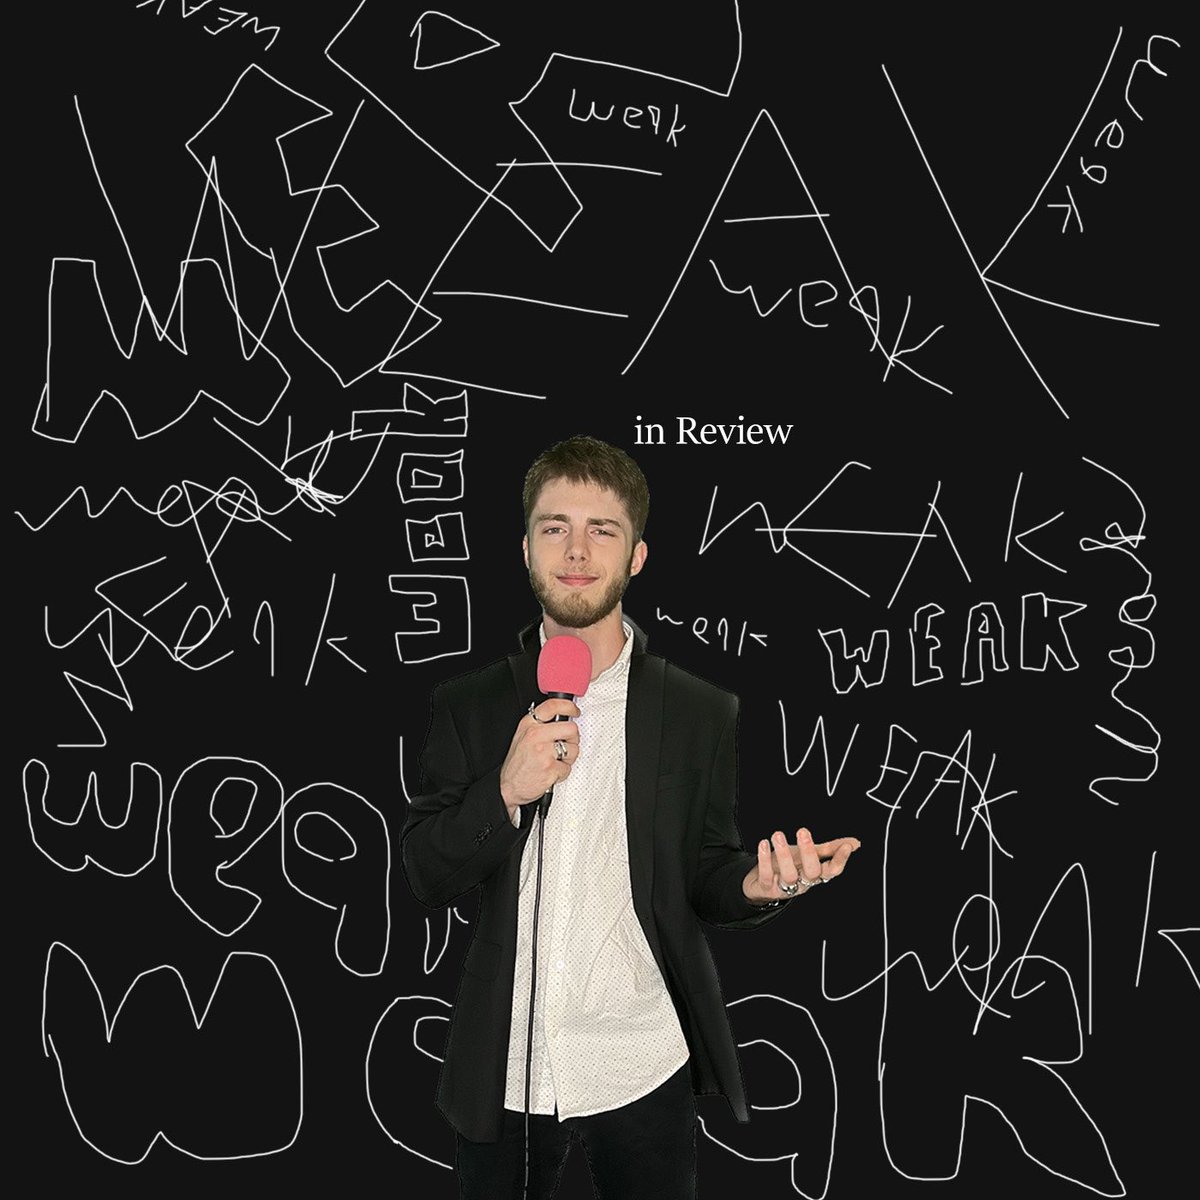 WEAK
weak
WEAK
WEAK
weak
weak
weak
in Review
weak
weak
WEAK
weak
weak
weak
WEAK
weak
WEAK
weak
weak
weak